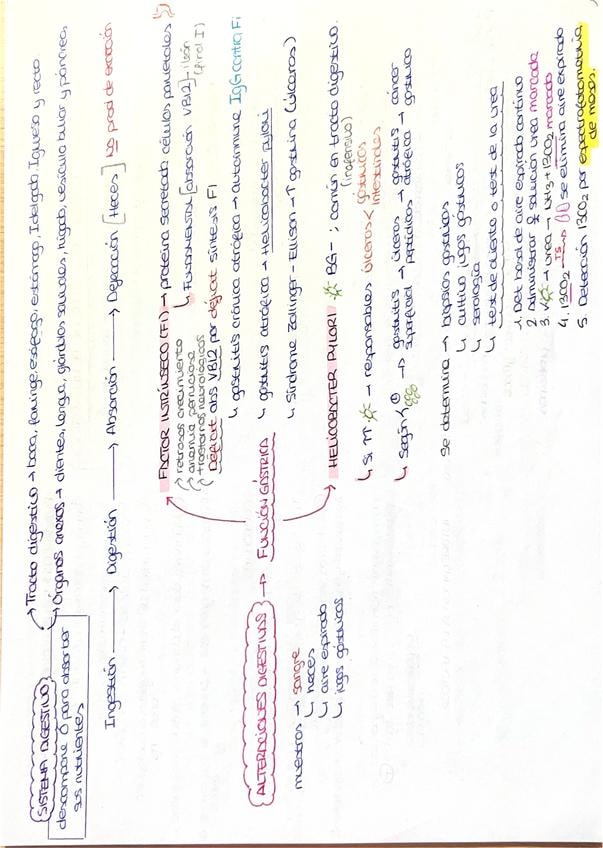 SISTEMA DIGESTIVO
→ Tracto digestivo → boca, faringe, esófago, estómago, I.delgado, I.grueso y recto
→ Órganos anexos → dientes, lengua, glándulas salivales, hígado, vesícula biliar y páncreas
descompone para absorber
sus nutrientes
Ingestión → Digestión → Absorción → Defecación [Heces] No prod de excreción
FACTOR INTRÍNSECO (FI) → proteína secretada células parietales
↳ FUNDAMENTAL [absorción VB12] - ileón
(final I)
retraso crecimiento
anemia perniciosa
trastornos neurológicos
Déficit abs VB12 por déficit síntesis FI
↳ gastritis crónica atrófica → autoinmune IgG contra Fi
↳ gastritis atrófica → Helicobacter pylori
↳ Síndrome Zollinger - Ellison → ↑ gastrina (úlceras)
ALTERACIONES DIGESTIVAS → FUNCIÓN GÁSTRICA
muestras → sangre
↳ heces
↳ aire espirado
↳ jugos gástricos
HELICOBACTER PYLORI BG- ; común en tracto digestivo.
(inofensivo)
↳ Si → responsables úlceras < gástricas
intestinales
↳ Según < → gastritis superficial → úlceras pépticas → gastritis atrófica → cáncer gástrico
Se determina → biopsias gástricas
↳ cultivo jugos gástricos
↳ serología
↳ test de aliento o test de la urea
1. Det basal de aire espirado continuo
2. Administrar solución urea marcada
3. → urea → NH3 + 13CO2 marcado
4. 13CO2 → se elimina aire espirado
5. Detección 13CO2 por espectrofotometría
de masas.